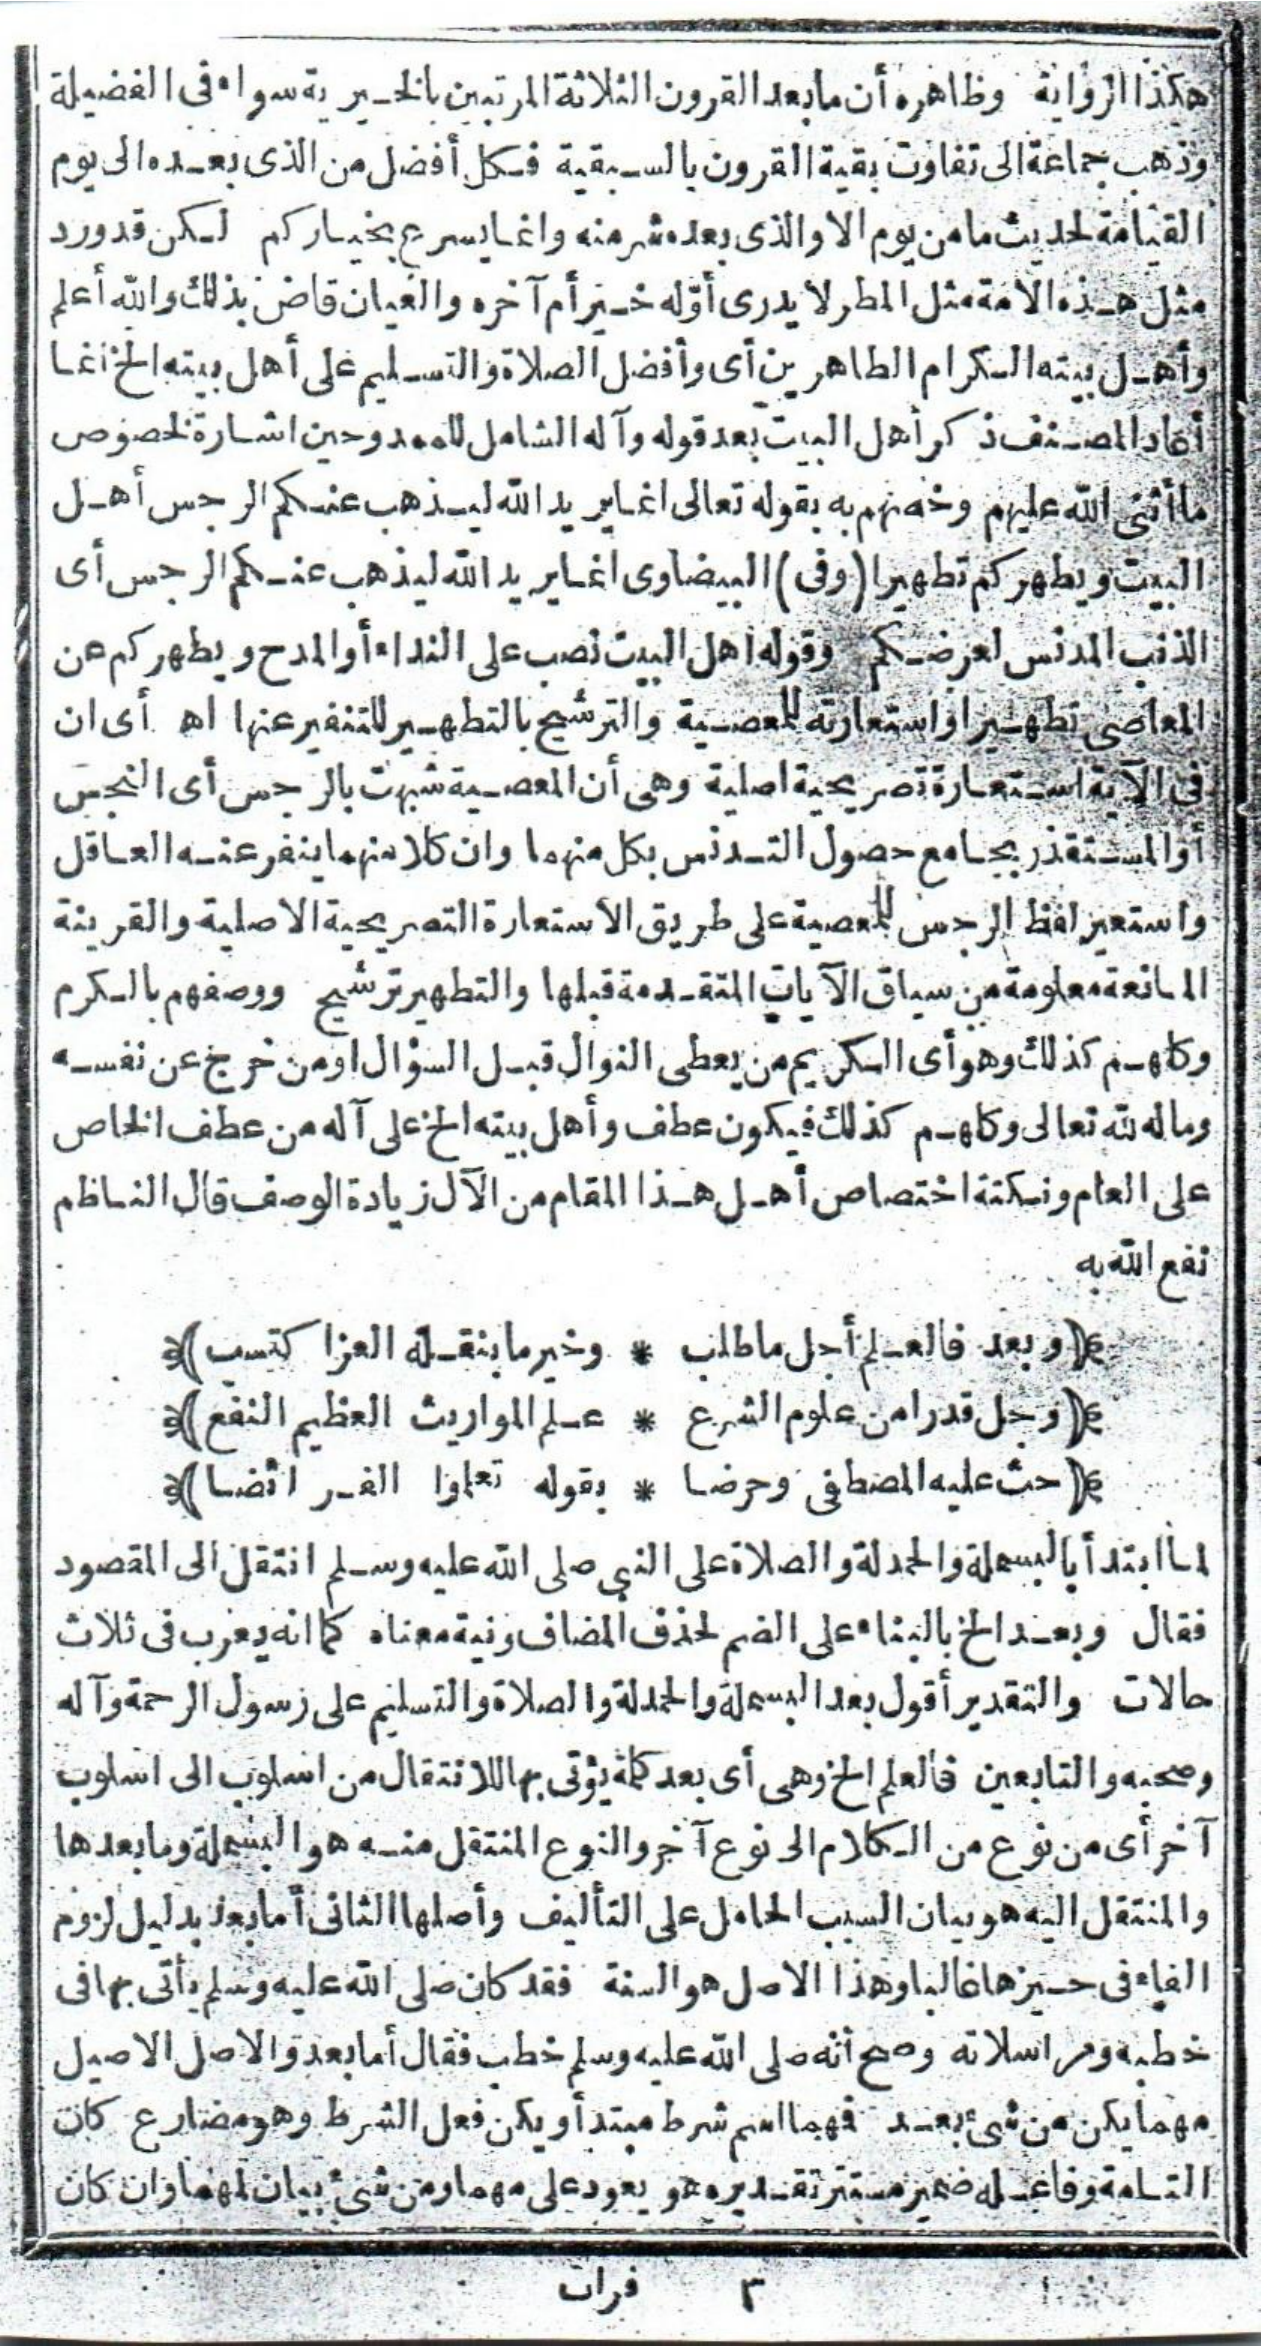 هكذا الرواية وظاهره أن ما بعد القرون الثلاثة المرتبين بالخيرية سواء في الفضيلة
وذهب جماعة الى تفاوت بقية القرون بالسبقية فكل أفضل من الذى بعده الى يوم
القيامة لحديث ما من يوم الا والذى بعده شر منه وانما يسرع بخياركم لكن قد ورد
مثل هذه الامة مثل المطر لا يدرى أوّله خير أم آخره والعيان قاض بذلك والله أعلم
وأهل بيته الكرام الطاهرين أى وأفضل الصلاة والتسليم على أهل بيته الخ انما
أعاد المصنف ذكر أهل البيت بعد قوله وآله الشامل للممدوحين اشارة لخصوص
ما أثنى الله عليهم وخصهم به بقوله تعالى انما يريد الله ليذهب عنكم الرجس أهل
البيت ويطهركم تطهيرا (وفى) البيضاوى انما يريد الله ليذهب عنكم الرجس أى
الذنب المدنس لعرضكم وقوله اهل البيت نصب على النداء أو المدح ويطهركم عن
المعاصى تطهيرا واستعارته للمعصية والترشيح بالتطهير للتنفير عنها اه أى ان
فى الآية استعارة تصريحية اصلية وهى أن المعصية شبهت بالرجس أى النجس
أو المستقذر بجامع حصول التدنس بكل منهما وان كلا منهما ينفر عنه العاقل
واستعير لفظ الرجس للمعصية على طريق الاستعارة التصريحية الاصلية والقرينة
المانعة معلومة من سياق الآيات المتقدمة قبلها والتطهير ترشيح ووصفهم بالكرم
وكلهم كذلك وهو أى الكريم من يعطى النوال قبل السؤال او من خرج عن نفسه
وماله لله تعالى وكلهم كذلك فيكون عطف وأهل بيته الخ على آله من عطف الخاص
على العام ونكتة اختصاص أهل هذا المقام من الآل زيادة الوصف قال الناظم
نفع الله به
﴿وبعد فالعلم أجل ما طلب * وخير ما ينقله العزا كتسب﴾
﴿وجل قدرا من علوم الشرع * علم المواريث العظيم النفع﴾
﴿حث عليه المصطفى وحرضا * بقوله تعلموا الفرائضا﴾
لما ابتدأ بالبسملة والحمدلة والصلاة على النبى صلى الله عليه وسلم انتقل الى المقصود
فقال وبعد الخ بالبناء على الضم لحذف المضاف ونية معناه كما انه يعرب فى ثلاث
حالات والتقدير أقول بعد البسملة والحمدلة والصلاة والتسليم على رسول الرحمة وآله
وصحبه والتابعين فالعلم الخ وهى أى بعد كلمة يؤتى بها للانتقال من اسلوب الى اسلوب
آخر أى من نوع من الكلام الى نوع آخر والنوع المنتقل منه هو البسملة وما بعدها
والمنتقل اليه هو بيان السبب الحامل على التأليف وأصلها الثانى أما بعد بدليل لزوم
الفاء فى حيزها غالبا وهذا الاصل هو السنة فقد كان صلى الله عليه وسلم يأتى بها فى
خطبه ومراسلاته وصح أنه صلى الله عليه وسلم خطب فقال أما بعد والاصل الاصيل
مهما يكن من شئ بعد فهما اسم شرط مبتدأ ويكن فعل الشرط وهو مضارع كان
التامة وفاعله ضمير مستتر تقديره هو يعود على مهما ومن شئ بيان لمهما وان كان
٣ فرات